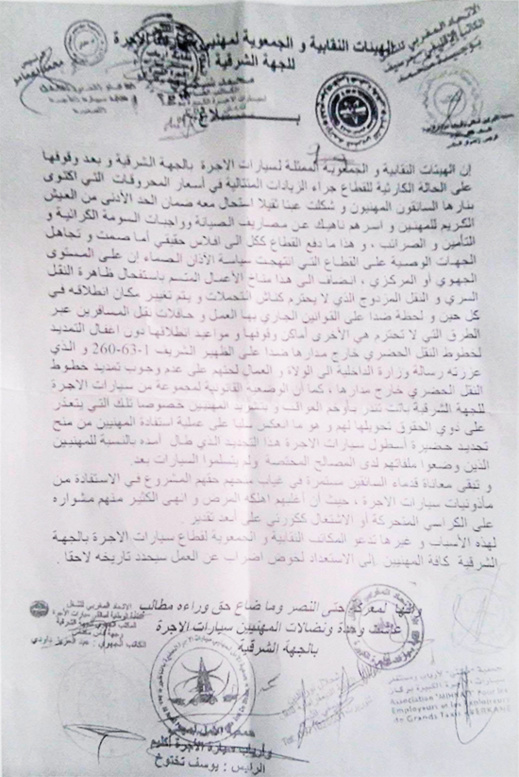 الهيئات النقابية و الجمعوية لمهنيي سيارات الاجرة
للجهة الشرقية
بــــلاغ
إن الهيئات النقابية و الجمعوية الممثلة لسيارات الاجرة بالجهة الشرقية و بعد وقوفها
على الحالة الكارثية للقطاع جراء الزيادات المتتالية في أسعار المحروقات التي اكتوى
بنارها السائقون المهنيون و شكلت عبئا ثقيلا استحال معه ضمان الحد الأدنى من العيش
الكريم للمهنيين و اسرهم ناهيك عن مصاريف الصيانة وواجبات السومة الكرائية و
التأمين و الضرائب ، و هذا ما دفع القطاع ككل الى افلاس حقيقي أما صمت و تجاهل
الجهات الوصية على القطاع التي انتهجت سياسة الآذان الصماء ان على المستوى
الجهوي أو المركزي ، انضاف الى هذا مناخ الأعمال المتسم باستفحال ظاهرة النقل
السري و النقل المزدوج الذي لا يحترم كناش التحملات و يتم تغيير مكان انطلاقه في
كل حين و لحظة ضدا على القوانين الجاري بها العمل و حافلات نقل المسافرين عبر
الطرق التي لا تحترم هي الأخرى أماكن وقوفها و مواعيد انطلاقها دون اغفال التمديد
لخطوط النقل الحضري خارج مدارها ضدا على الظهير الشريف 1-63-260 و الذي
عززته رسالة وزارة الداخلية الى الولاة و العمال لحثهم على عدم وجوب تمديد خطوط
النقل الحضري خارج مدارها ، كما أن الوضعية القانونية لمجموعة من سيارات الاجرة
للجهة الشرقية باتت تنذر بأوخم العواقب و بتشريد المهنيين خصوصا تلك التي يتعذر
على ذوي الحقوق تحويلها لهم و هو ما انعكس سلبا على عملية استفادة المهنيين من منح
تجديد حضيرة أسطول سيارات الاجرة هذا التجديد الذي طال أمده بالنسبة للمهنيين
الذين وضعوا ملفاتهم لدى المصالح المختصة ولم يتسلموا السيارات بعد
و تبقى معاناة قدماء السائقين مستمرة في غياب منحهم حقهم المشروع في الاستفادة من
مأذونيات سيارات الاجرة ، حيث أن أغلبهم اهلكه المرض و انهى الكثير منهم مشواره
على الكراسي المتحركة أو الاشتغال ككورتي على أبعد تقدير .
لهذه الأسباب و غيرها تدعو المكاتب النقابية و الجمعوية لقطاع سيارات الاجرة بالجهة
الشرقية كافة المهنيين إلى الاستعداد لخوض اضراب عن العمل سيحدد تاريخه لاحقا .
لمعركة حتى النصر وما ضاع حق وراءه مطالب
عاشت وحدة ونضالات المهنيين سيارات الاجرة
بالجهة الشرقية
الاتحاد المغربي للشغل
الكاتب الجهوي : عبد العزيز داودي
Association
Employeurs et les Exploitants
de Grands Taxis BERKANE
وأرباب سيارة الأجرة
الرئيس : يوسف تختوخ